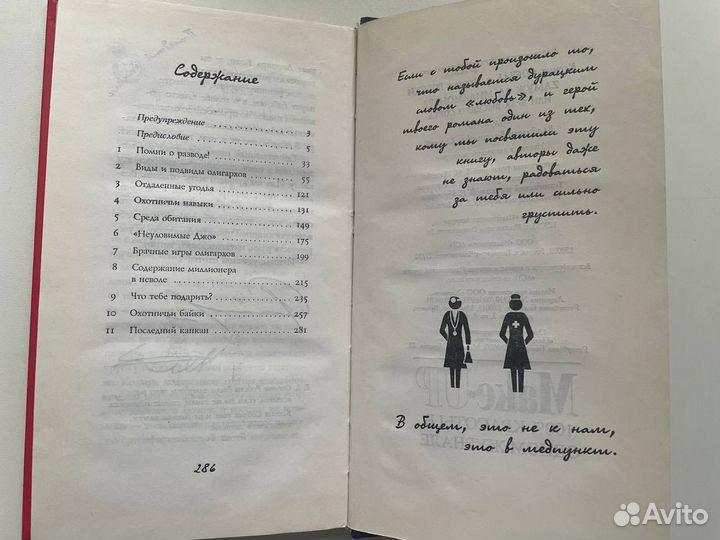 Содержание
Предупреждение 3
Предисловие 5
1 Помни о разводе! 33
2 Виды и подвиды олигархов 55
3 Отдаленные угодья 121
4 Охотничьи навыки 131
5 Среда обитания 149
6 «Неуловимые Джо» 175
7 Брачные игры олигархов 199
8 Содержание миллионера
в неволе 215
9 Что тебе подарить? 235
10 Охотничьи байки 257
11 Последний капкан 281
286
Если с тобой произошло то,
что называется дурацким
словом «любовь», и герой
твоего романа один из тех,
кому мы посвятили эту
книгу, авторы даже
не знают, радоваться
за тебя или сильно
грустить.
Make-UP
В общем, это не к нам,
это в медпункт.
Avito